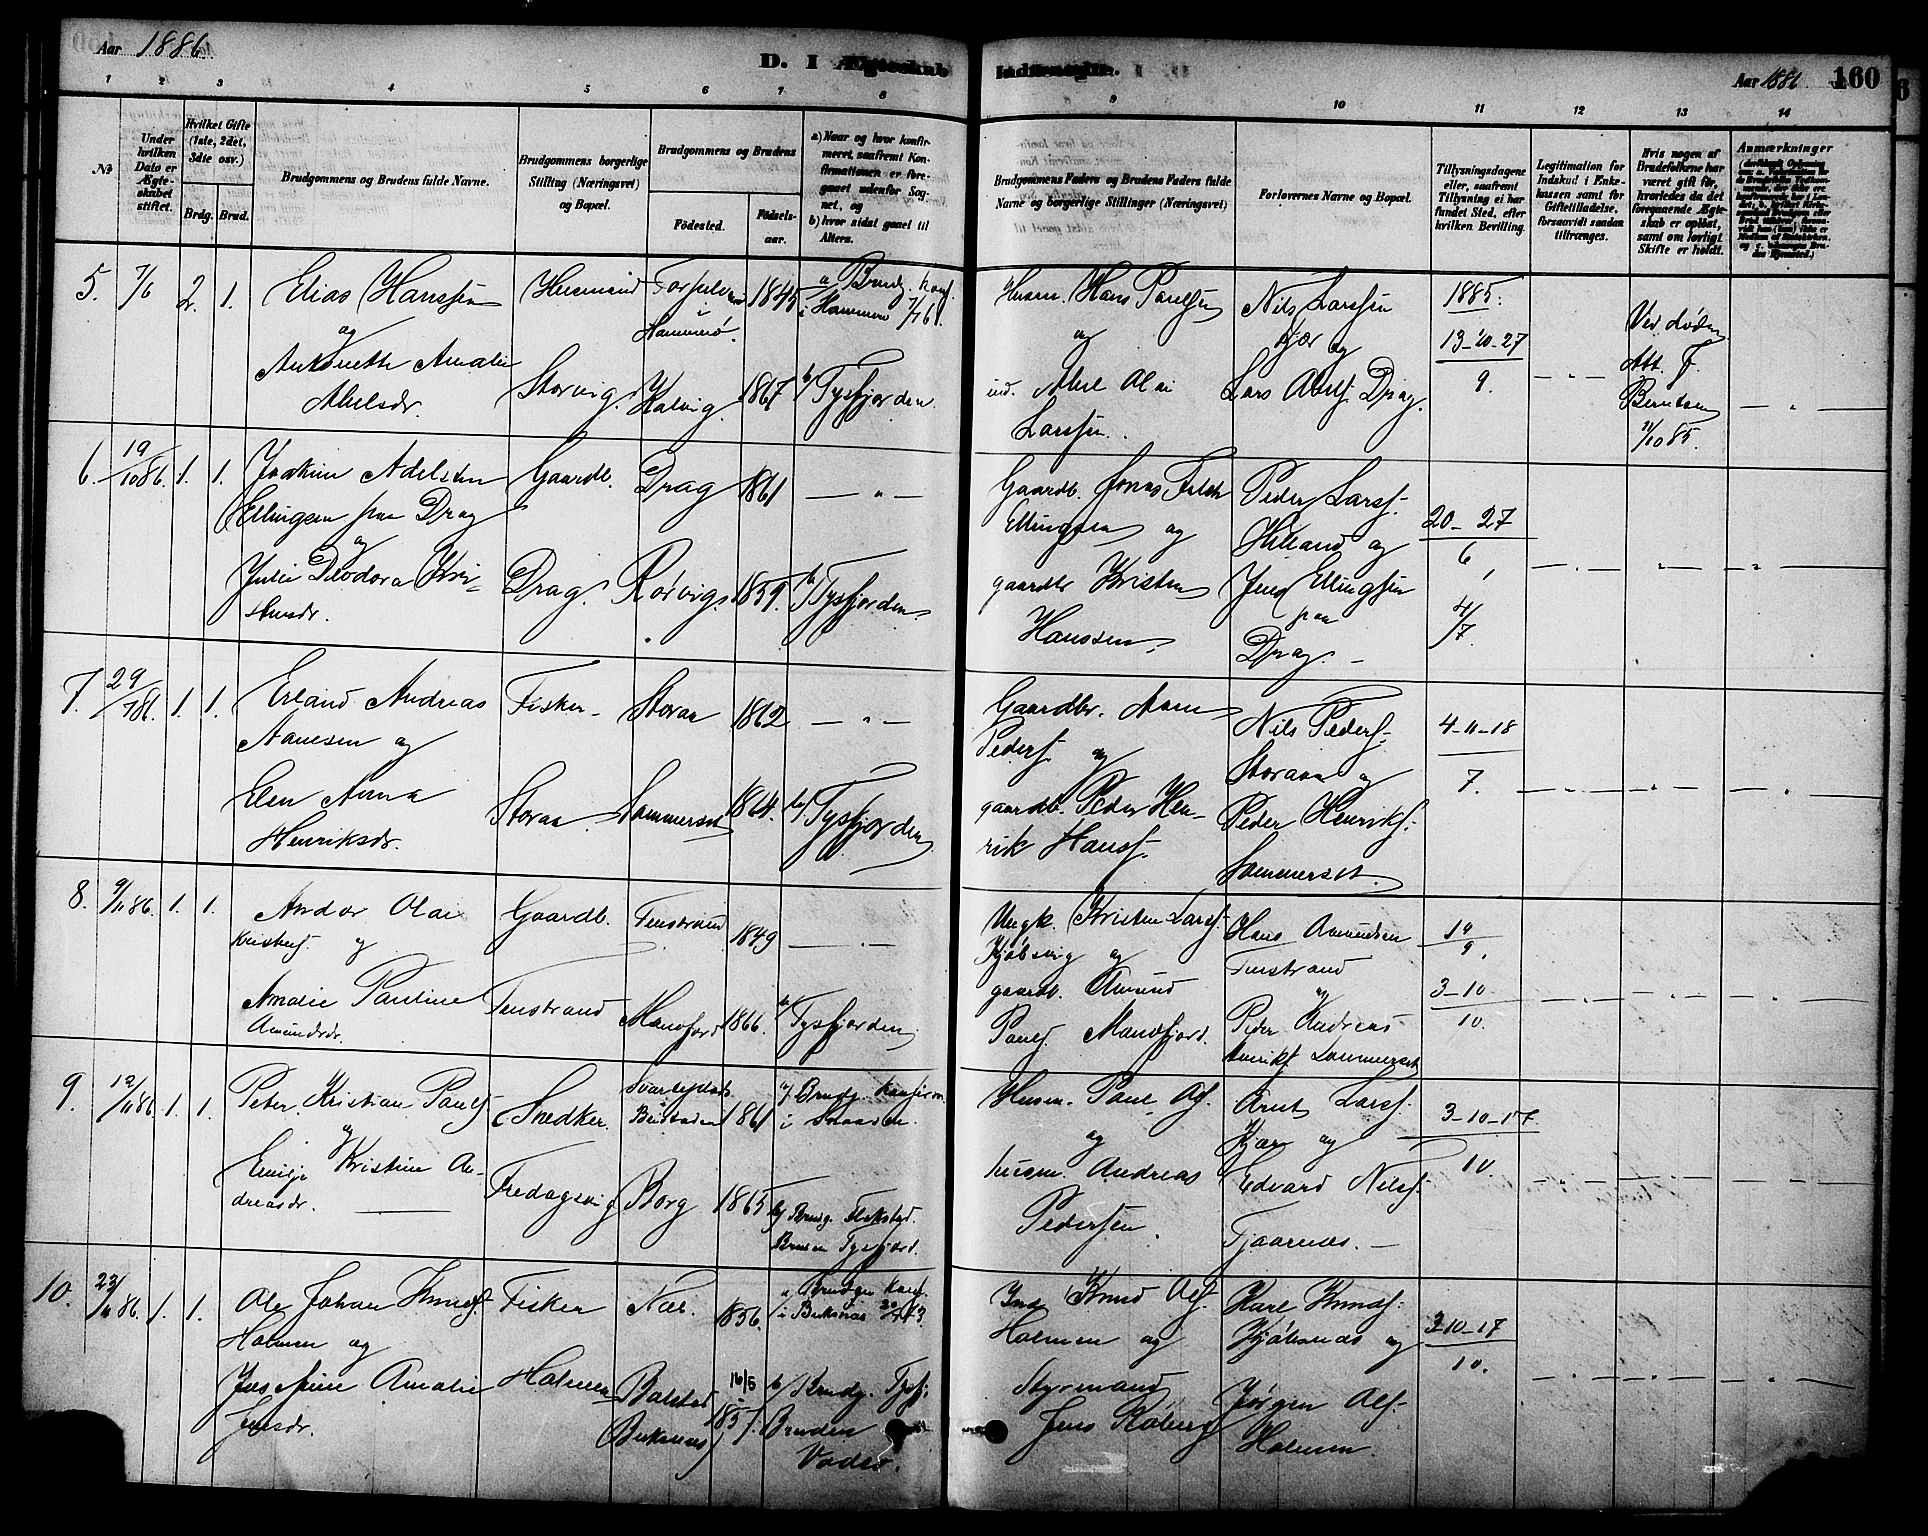 Aar 1886.
D. I Ægteskab
Indtraadte.
Aar 1886
160
1 2 3 4 5 6 7 8
9 10 11 12 13 14
№
Under hvilken Dato er Ægteskabet stiftet.
Hvilket Gifte (1ste, 2det, 3die osv.)
Brdg. Brud.
Brudgommens og Brudens fulde Navne.
Brudgommens borgerlige Stilling (Næringsvei) og Bopæl.
Brudgommens og Brudens
Fødested. Fødselsaar.
a) Naar og hvor konfirmeret, saafremt Konfirmationen er foregaaet udenfor Sognet, og
b) hvor sidst gaaet til Alters.
Brudgommens Faders og Brudens Faders fulde Navne og borgerlige Stillinger (Næringsvei)
Forlovernes Navne og Bopæl.
Tillysningsdagene eller, saafremt Tillysning ei har fundet Sted, efter hvilken Bevilling.
Legitimation for Indskud i Enkekassen samt for Giftetilladelse, forsaavidt saadan tiltrænges.
Hvis nogen af Brudefolkene har været gift før, hvorledes da det foregaaende Ægteskab er opløst, samt om lovligt Skifte er holdt.
Anmærkninger
5. 7/6 2. 1. Elias Hanssen
og
Antonette Amalie
Abelsdr.
Husmand
Storvig.
i
Hammerø.
Kalvig.
1845
1867
a Brudg. konf.
i Hammerø 7/7 61.
b/ Tysfjorden.
Husm. Hans Paulsen
og
ind. Abel Olai
Larssen.
Nils Larssen
Kjær og
Lars Abelsf. Drag.
1885:
13-20-27
9.
Ved døden
Att. f.
Berntsen
21/10 85.
6. 19/10 86. 1. 1. Joakim Adelsten
Ellingsen paa Drag
og
Julie Deodora Kri-
stensdr.
Gaardb.
Drag.
Drag
Rørvig
1861
1859.
— " —
b/ Tysfjorden.
Gaardb. Jonas Falch
Ellingsen og
gaardbr Kristen
Hanssen.
Peder Larsf.
Helland og
Jens Ellingsen
paa
Drag. —
20-27
6,
4/7.
7. 29/7 86. 1. 1. Erland Andreas
Aanesen og
Elen Anna
Henriksdr.
Fisker —
Storaa.
Storaa
Sommerset
1862
1864.
— " —
b/ Tysfjorden
Gaardbr. Aane
Pedersf. og
gaardb. Peder Hen-
rik Hansf.
Nils Pedersf.
Storaa og
Peder Henriksf.
Sommerset.
4-11-18
7.
8. 9/11 86. 1. 1. Andor Olai
Kristensf. og
Amalie Pauline
Amundsdr.
Gaardb.
Tenstrand
Tenstrand
Mannfjord
1849
1866.
— " —
b/ Tysfjorden
Ungk. Kristen Larsf.
Kjøbsvig og
gaardb. Amund
Paulsf. Mandfjord.
Hans Amundsen
Tenstrand
og
Peder Andreas
Henriksf. Sommerset
19
9,
3-10
10.
9. 12/11 86. 1. 1. Peter Kristian Paulsf.
og
Emilje Kristine An-
dreasdr.
Snedker.
Fredagsvig
Borg
1861
1865
a/ Brudg. konfirm.
i
b/ Brudg. Flakstad.
Bruden Tysfjord.
Husm. Paul Olsf.
og
husm. Andreas
Pedersen.
Arnt Larsf.
Kjær og
Edvard Nilsf.
Tjaarnes. —
3-10-17
10.
10. 23/11 86. 1. 1. Ole Johan Knudsf.
Holmen og
Josefine Amalie
Jensdr.
Fisker
Holmen
Næs.
Balstad
Buksnes)
1856.
16/5
1857.
a Brudgn konf.
i Buksnæs
b/ Brudg. Tysfj.
Bruden
Vadsø.
Ind. Knud Olsf.
Holmen og
Styrmand
Jens Roberg
Karl Knudsf.
Kjøbsnæs og
Jørgen Olsf.
Holmen.
3-10-17
10.